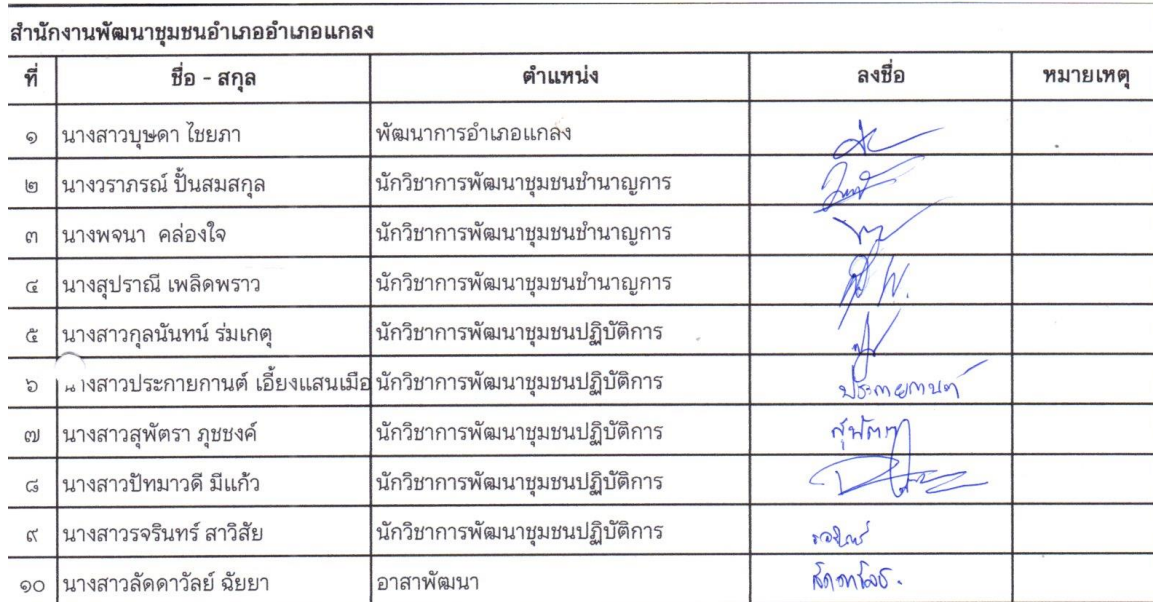 สำนักงานพัฒนาชุมชนอำเภออำเภอแกลง
ที่ ชื่อ - สกุล ตำแหน่ง ลงชื่อ หมายเหตุ
๑ นางสาวบุษดา ไชยภา พัฒนาการอำเภอแกลง
๒ นางวราภรณ์ ปั้นสมสกุล นักวิชาการพัฒนาชุมชนชำนาญการ
๓ นางพจนา คล่องใจ นักวิชาการพัฒนาชุมชนชำนาญการ
๔ นางสุปราณี เพลิดพราว นักวิชาการพัฒนาชุมชนชำนาญการ
๕ นางสาวกุลนันทน์ ร่มเกตุ นักวิชาการพัฒนาชุมชนปฏิบัติการ
๖ นางสาวประกายกานต์ เอี้ยงแสนเมือ นักวิชาการพัฒนาชุมชนปฏิบัติการ ประกายกานต์
๗ นางสาวสุพัตรา ภุชชงค์ นักวิชาการพัฒนาชุมชนปฏิบัติการ สุพัตรา
๘ นางสาวปัทมาวดี มีแก้ว นักวิชาการพัฒนาชุมชนปฏิบัติการ
๙ นางสาวรจรินทร์ สาวิสัย นักวิชาการพัฒนาชุมชนปฏิบัติการ
๑๐ นางสาวลัดดาวัลย์ ฉัยยา อาสาพัฒนา ลัดดาวัลย์